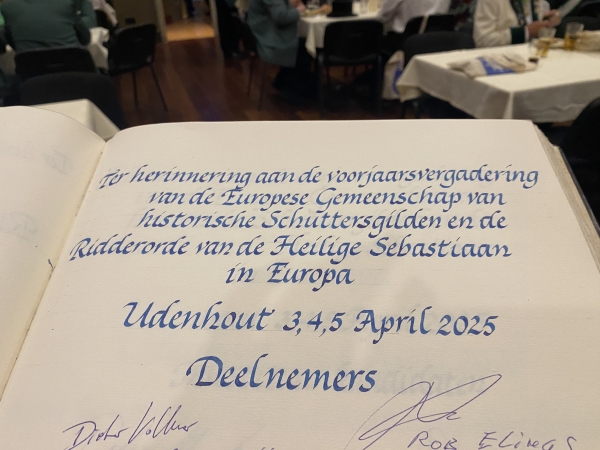 Ter herinnering aan de voorjaarsvergadering
van de Europese Gemeenschap van
historische Schuttersgilden en de
Ridderorde van de Heilige Sebastiaan
in Europa
Udenhout 3,4,5 April 2025
Deelnemers
Dieter Vollmer
ROB ELINGS